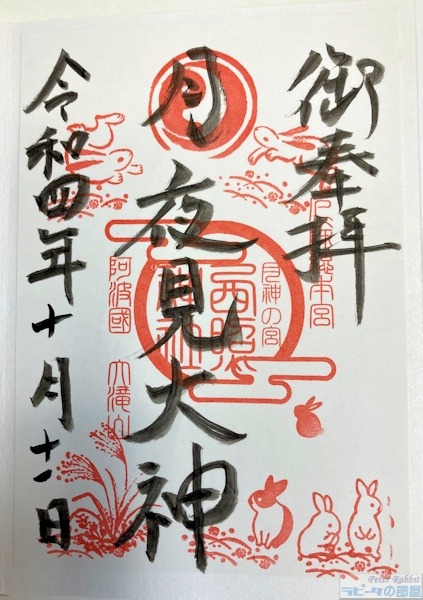 御奉拝
月神の宮
月夜見大神
西照神社
阿波國 大滝山
令和四年十月十一日
Peter Rabbit
ラピータの部屋